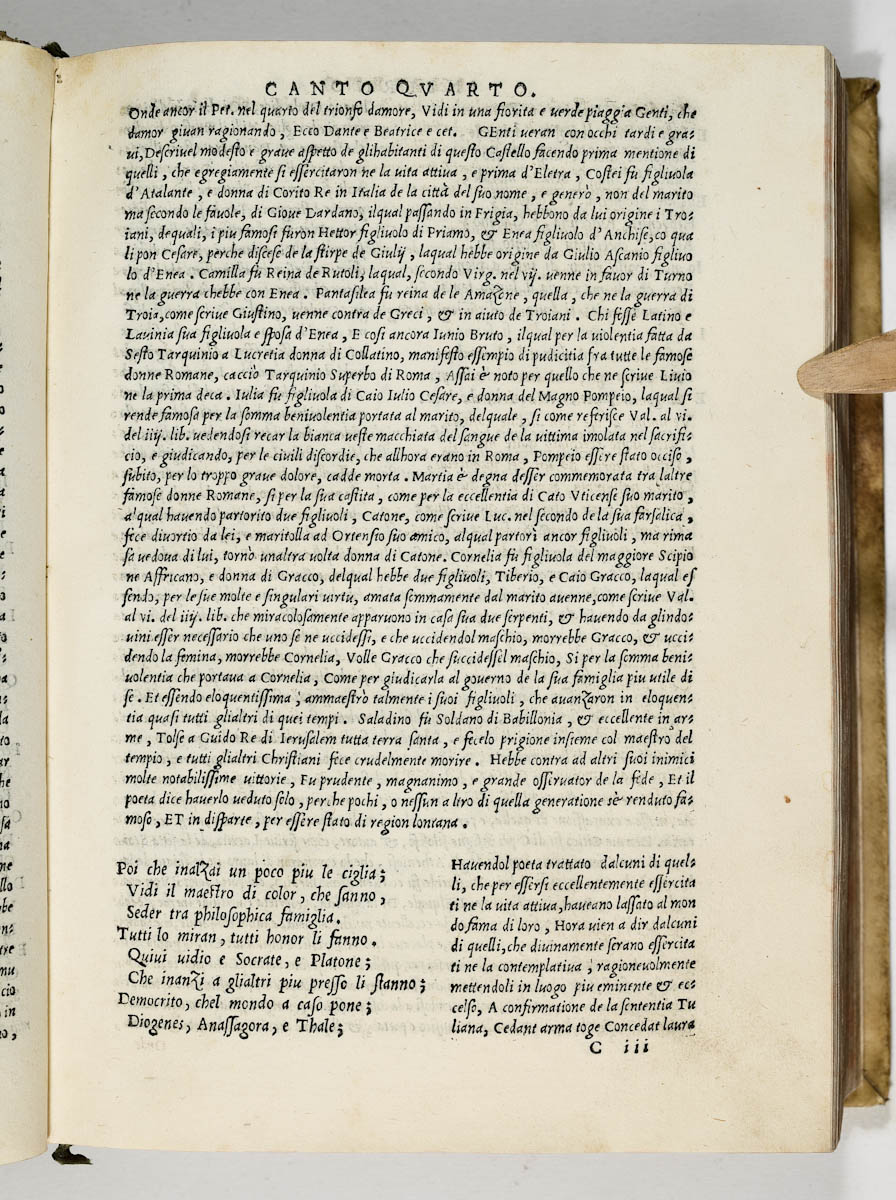 CANTO QVARTO.
Onde ancor il Pet. nel quarto del trionfo damore, Vidi in una fiorita e uerde piaggia Genti, che
damor giuan ragionando, Ecco Dante e Beatrice e cet. GEnti ueran con occhi tardi e gra-
ui, Descriuel modesto e graue aspetto de glihabitanti di questo Castello facendo prima mentione di
quelli, che egregiamente si essercitaron ne la uita attiua, e prima d'Eletra, Costei fu figliuola
d'Atalante, e donna di Corito Re in Italia de la città del suo nome, e generò, non del marito
ma secondo le fauole, di Gioue Dardano, ilqual passando in Frigia, hebbono da lui origine i Tro-
iani, dequali, i piu famosi furon Hettor figliuolo di Priamo, & Enea figliuolo d'Anchise, co qua
li pon Cesare, perche discese de la stirpe de Giulij, laqual hebbe origine da Giulio Ascanio figliuo
lo d'Enea. Camilla fu Reina de Rutoli, laqual, secondo Virg. nel vij. uenne in fauor di Turno
ne la guerra chebbe con Enea. Pantasilea fu reina de le Amazone, quella, che ne la guerra di
Troia, come scriue Giustino, uenne contra de Greci, & in aiuto de Troiani. Chi fesse Latino e
Lauinia sua figliuola e sposa d'Enea, E cosi ancora Iunio Bruto, ilqual per la uiolentia fatta da
Sesto Tarquinio a Lucretia donna di Collatino, manifesto essempio di pudicitia fra tutte le famose
donne Romane, cacciò Tarquinio Superbo di Roma, Assai è noto per quello che ne scriue Liuio
ne la prima deca. Iulia fu figliuola di Caio Iulio Cesare, e donna del Magno Pompeio, laqual si
rende famosa per la somma beniuolentia portata al marito, delquale, si come referisce Val. al vi.
del iiij. lib. uedendosi recar la bianca ueste macchiata del sangue de la uittima imolata nel sacrifi-
cio, e giudicando, per le ciuili discordie, che allhora erano in Roma, Pompeio essere stato occiso,
subito, per lo troppo graue dolore, cadde morta. Martia è degna desser commemorata tra laltre
famose donne Romane, si per la sua castita, come per la eccellentia di Cato Vticense suo marito,
alqual hauendo partorito due figliuoli, Catone, come scriue Luc. nel secondo de la sua farsalica,
fece diuortio da lei, e maritolla ad Ortensio suo amico, alqual partorì ancor figliuoli, ma rima
sa uedoua di lui, tornò unaltra uolta donna di Catone. Cornelia fu figliuola del maggiore Scipio
ne Affricano, e donna di Gracco, delqual hebbe due figliuoli, Tiberio, e Caio Gracco, laqual es
sendo, per le sue molte e singulari uirtu, amata sommamente dal marito auenne, come scriue Val.
al vi. del iiij. lib. che miracolosamente apparuono in casa sua due serpenti, & hauendo da glindo-
uini esser necessario che uno se ne uccidessi, e che uccidendol maschio, morrebbe Gracco, & ucci-
dendo la femina, morrebbe Cornelia, Volle Gracco che succidessel maschio, Si per la somma beni-
uolentia che portaua a Cornelia, Come per giudicarla al gouerno de la sua famiglia piu utile di
se. Et essendo eloquentissima, ammaestrò talmente i suoi figliuoli, che auanzaron in eloquen-
tia quasi tutti glialtri di quei tempi. Saladino fu Soldano di Babillonia, & eccellente in ar-
me, Tolse a Guido Re di Ierusalem tutta terra santa, e fecelo prigione insieme col maestro del
tempio, e tutti glialtri Christiani fece crudelmente morire. Hebbe contra ad altri suoi inimici
molte notabilissime uittorie, Fu prudente, magnanimo, e grande osseruator de la fede, Et il
poeta dice hauerlo ueduto solo, perche pochi, o nessun altro di quella generatione sè renduto fa-
moso, ET in disparte, per essere stato di region lontana.
Poi che inalzai un poco piu le ciglia;
Vidi il maestro di color, che sanno,
Seder tra philosophica famiglia.
Tutti lo miran, tutti honor li fanno.
Quiui uidio e Socrate, e Platone;
Che inanzi a glialtri piu presso li stanno;
Democrito, chel mondo a caso pone;
Diogenes, Anassagora, e Thale;
Hauendol poeta trattato dalcuni di quel-
li, che per essersi eccellentemente essercita
ti ne la uita attiua, haueano lassato al mon
do fama di loro, Hora uien a dir dalcuni
di quelli, che diuinamente serano essercita
ti ne la contemplatiua, ragioneuolmente
mettendoli in luogo piu eminente & ec-
celso, A confirmatione de la sententia Tu
liana, Cedant arma toge Concedat laura
C iii